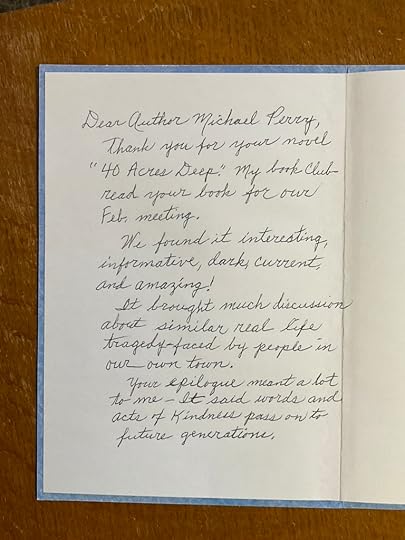 Dear Author Michael Perry,
Thank you for your novel
"40 Acres Deep." My book Club
read your book for our
Feb. meeting.
We found it interesting,
informative, dark, current,
and amazing!
It brought much discussion
about similar real life
tragedy-faced by people in
our own town.
Your epilogue meant a lot
to me - It said words and
acts of Kindness pass on to
future generations.